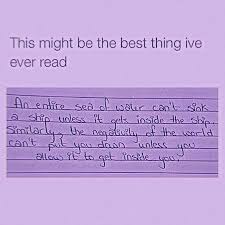 This might be the best thing ive
ever read
An entire sea of water can't sink
a ship unless it gets inside the ship.
Similarly, the negativity of the world
can't put you down unless you
allow it to get inside you.